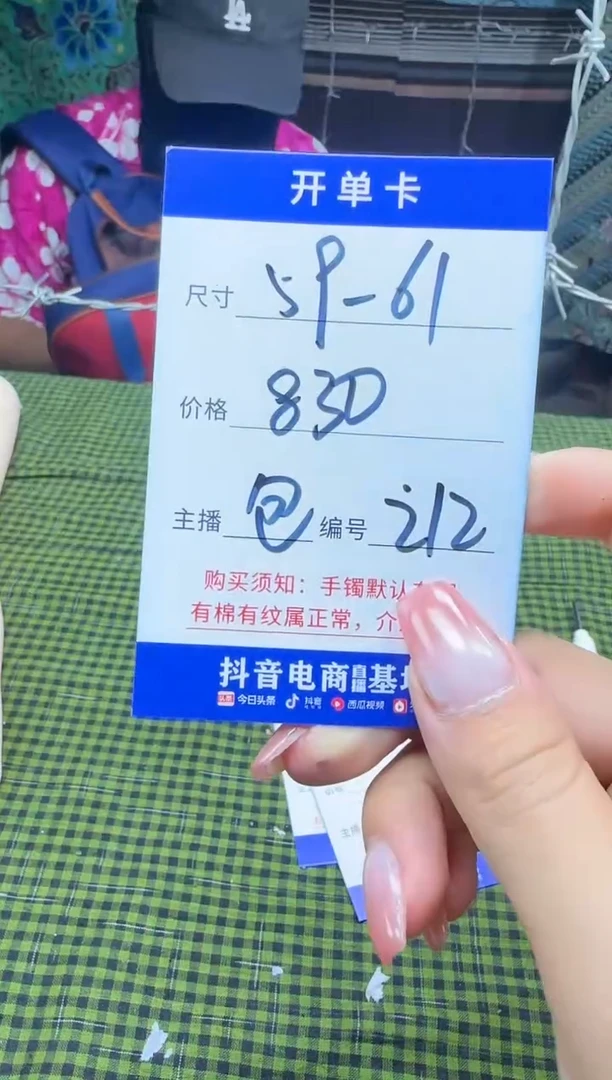 开单卡
尺寸 59-61
价格 830
主播 包 编号 212
购买须知：手镯默认
有棉有纹属正常，介
抖音电商直播基
头条 今日头条 抖音 西瓜视频
主